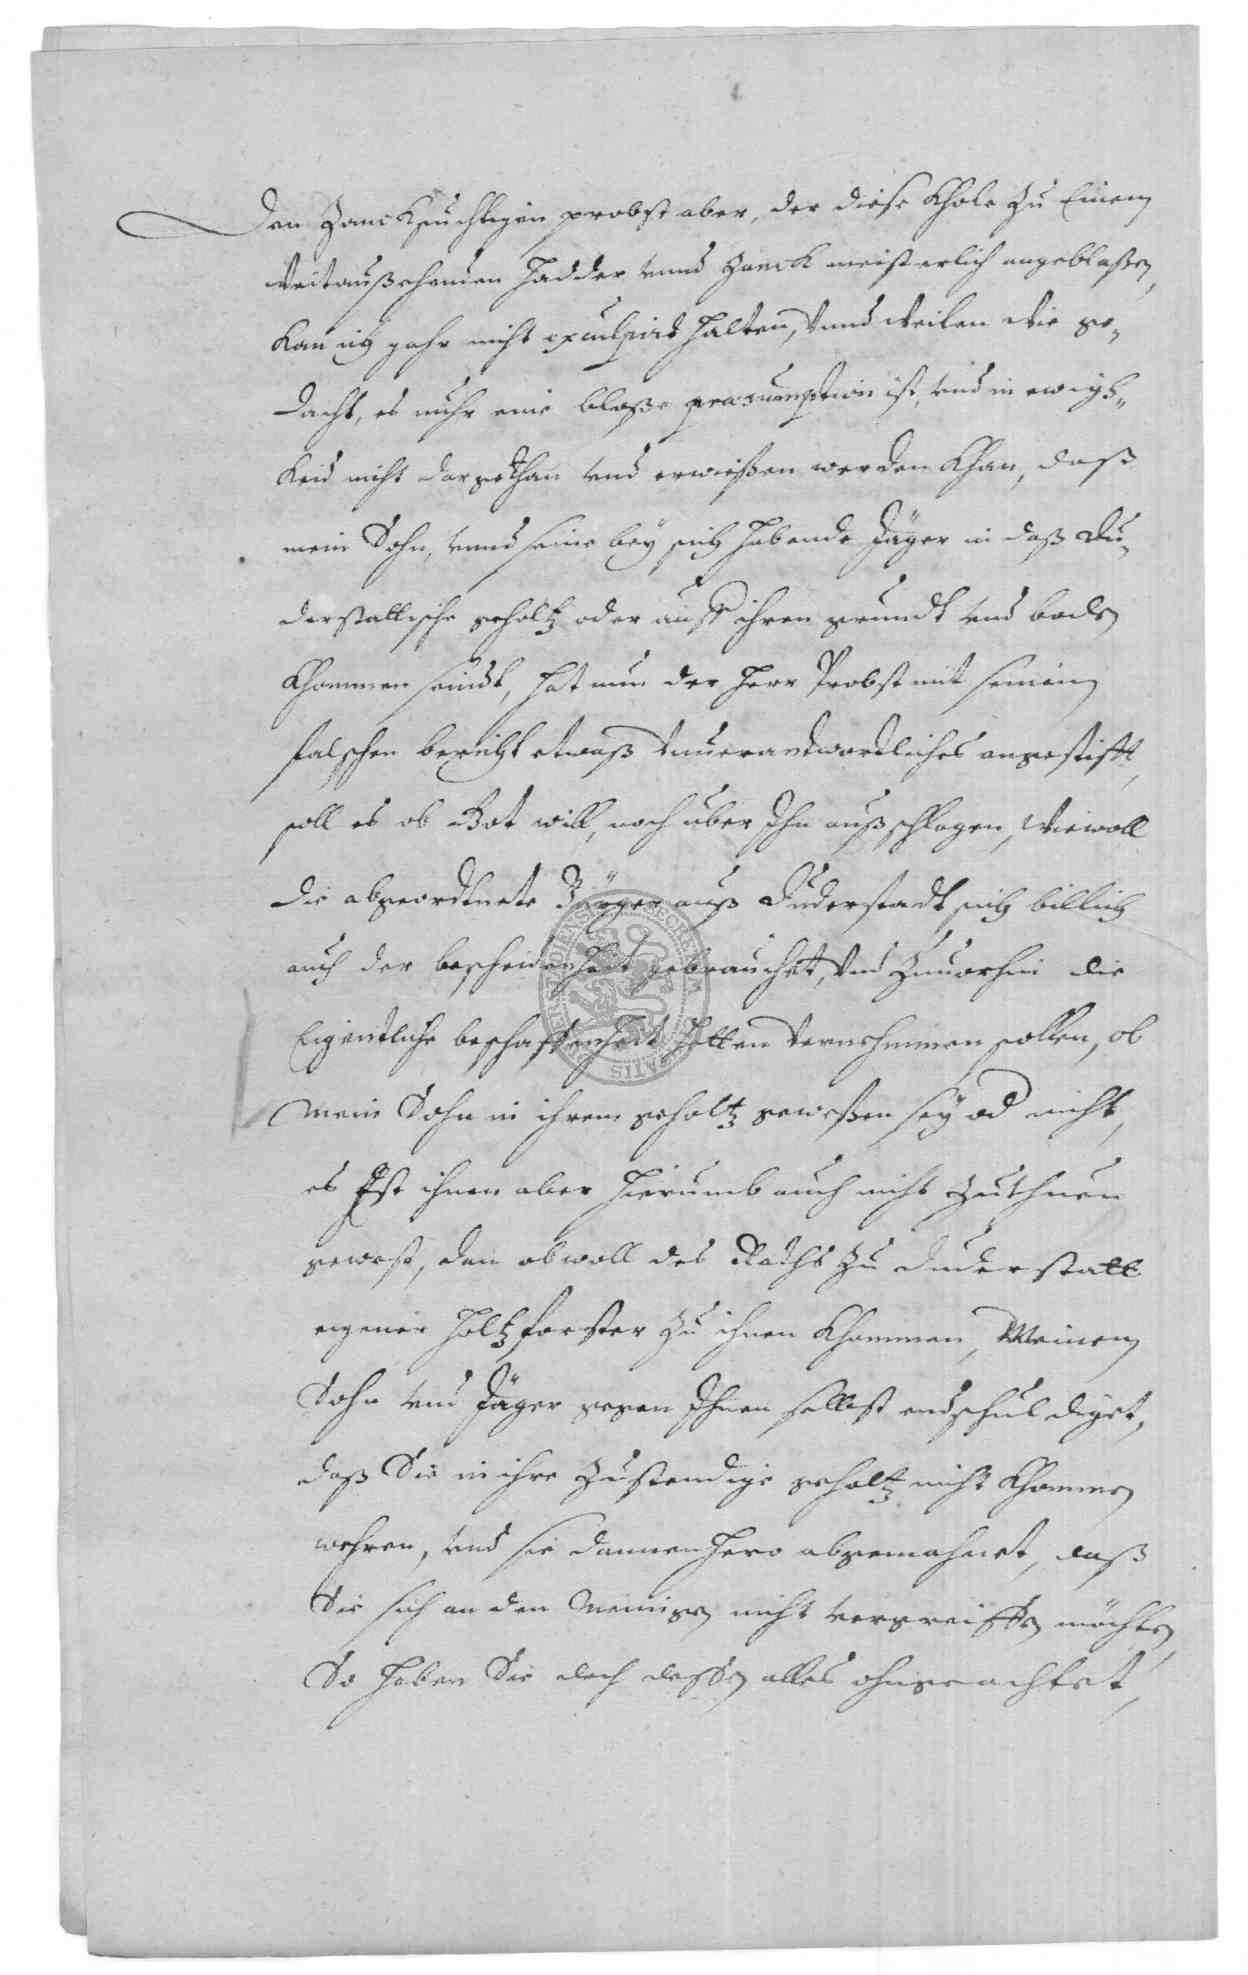 Den Zancksuchtigen probst aber, der diese Khole zu Einem
Weitaußehenden Hadder vnnd Zanck meisterlich angeblaßen,
Kan ich gahr nicht exculpirt halten, Vnnd Weilen Wie ge-
dacht, es nuhr eine bloße praesumption ist, vnd in ewig-
keid nicht dargethan vnd erwießen werden Khan, daß
mein Sohn, vnnd seine bey sich habende Jäger in daß Du-
derstattische geholtz oder auff ihren grundt vnd boden
Khommen seindt, hat nun der Herr Probst mit seinem
falschen bericht etwaß vnuerantwordtliches angestifft,
soll es ob Got will, noch uber Ihn außschlagen, Wiewoll
die abgeordtnete Bürger auß Duderstadt sich billich
auch der bescheidenheit gebrauchet, Vnd Zuuorhin die
Eigentliche beschaffenheit hetten vernehmmen sollen, ob
mein Sohn in ihrem geholtz geweßen sey od nicht,
es Ist ihnen aber hierumb auch nicht Zuthuen
geweßt, den obwoll des Raths zu Duderstatt
eigener holtzforster zu ihnen Khommen, Meinen
Sohn vnd Jäger gegen Ihnen selbst endschuldiget,
daß Sie in ihre Zustendige geholtz nicht Khommen
wehren, vnd sie dannenhero abgemahnet, daß
Sie sich an den Meinigen nicht vergreiffen möchten,
So haben Sie doch dessen alles ohngeachtet,